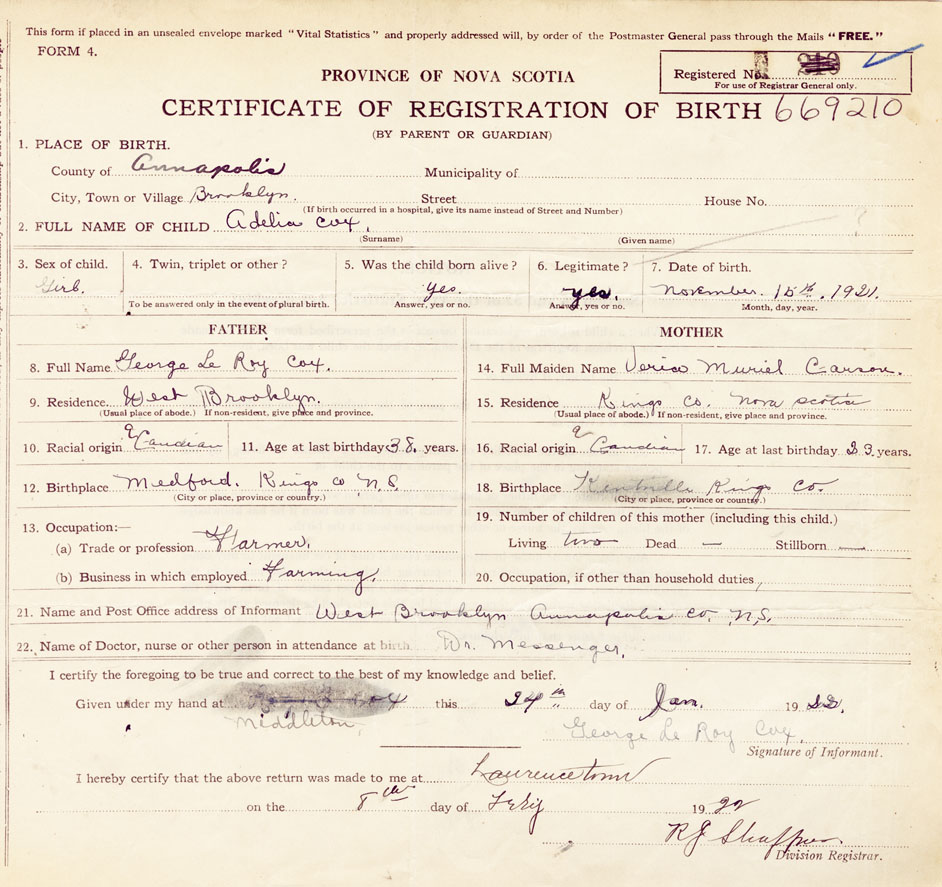 This form if placed in an unsealed envelope marked "Vital Statistics" and properly addressed will, by order of the Postmaster General pass through the Mails "FREE."
FORM 4.
PROVINCE OF NOVA SCOTIA
Registered No.
For use of Registrar General only.
CERTIFICATE OF REGISTRATION OF BIRTH 669210
(BY PARENT OR GUARDIAN)
1. PLACE OF BIRTH.
County of Annapolis Municipality of
City, Town or Village Brooklyn. Street House No.
(If birth occurred in a hospital, give its name instead of Street and Number)
2. FULL NAME OF CHILD Adelia Cox.
(Surname) (Given name) ?
3. Sex of child. 4. Twin, triplet or other? 5. Was the child born alive? 6. Legitimate? 7. Date of birth.
Girl. Yes. yes. November. 15th. 1921.
To be answered only in the event of plural birth. Answer, yes or no. Answer, yes or no. Month, day, year.
FATHER MOTHER
8. Full Name George Le Roy Cox. 14. Full Maiden Name Muriel Carson.
9. Residence West Brooklyn. 15. Residence Kings Co. Nova Scotia
(Usual place of abode.) If non-resident, give place and province. (Usual place of abode.) If non-resident, give place and province.
10. Racial origin Candian 11. Age at last birthday 38. years. 16. Racial origin Candian 17. Age at last birthday 23. years.
12. Birthplace Medford. Kings Co N.S. 18. Birthplace Kentville Kings Co.
(City or place, province or country.) (City or place, province or country.)
13. Occupation:— 19. Number of children of this mother (including this child.)
(a) Trade or profession Farmer. Living two Dead — Stillborn —
(b) Business in which employed Farming. 20. Occupation, if other than household duties,
21. Name and Post Office address of Informant West Brooklyn Annapolis Co. N.S.
22. Name of Doctor, nurse or other person in attendance at birth. Dr. Messenger.
I certify the foregoing to be true and correct to the best of my knowledge and belief.
Given under my hand at this 24th day of Jan. 1922.
Middleton.
George Le Roy Cox.
Signature of Informant.
I hereby certify that the above return was made to me at Laurencetown
on the 8th day of Feby 1922
R J Shaffner
Division Registrar.